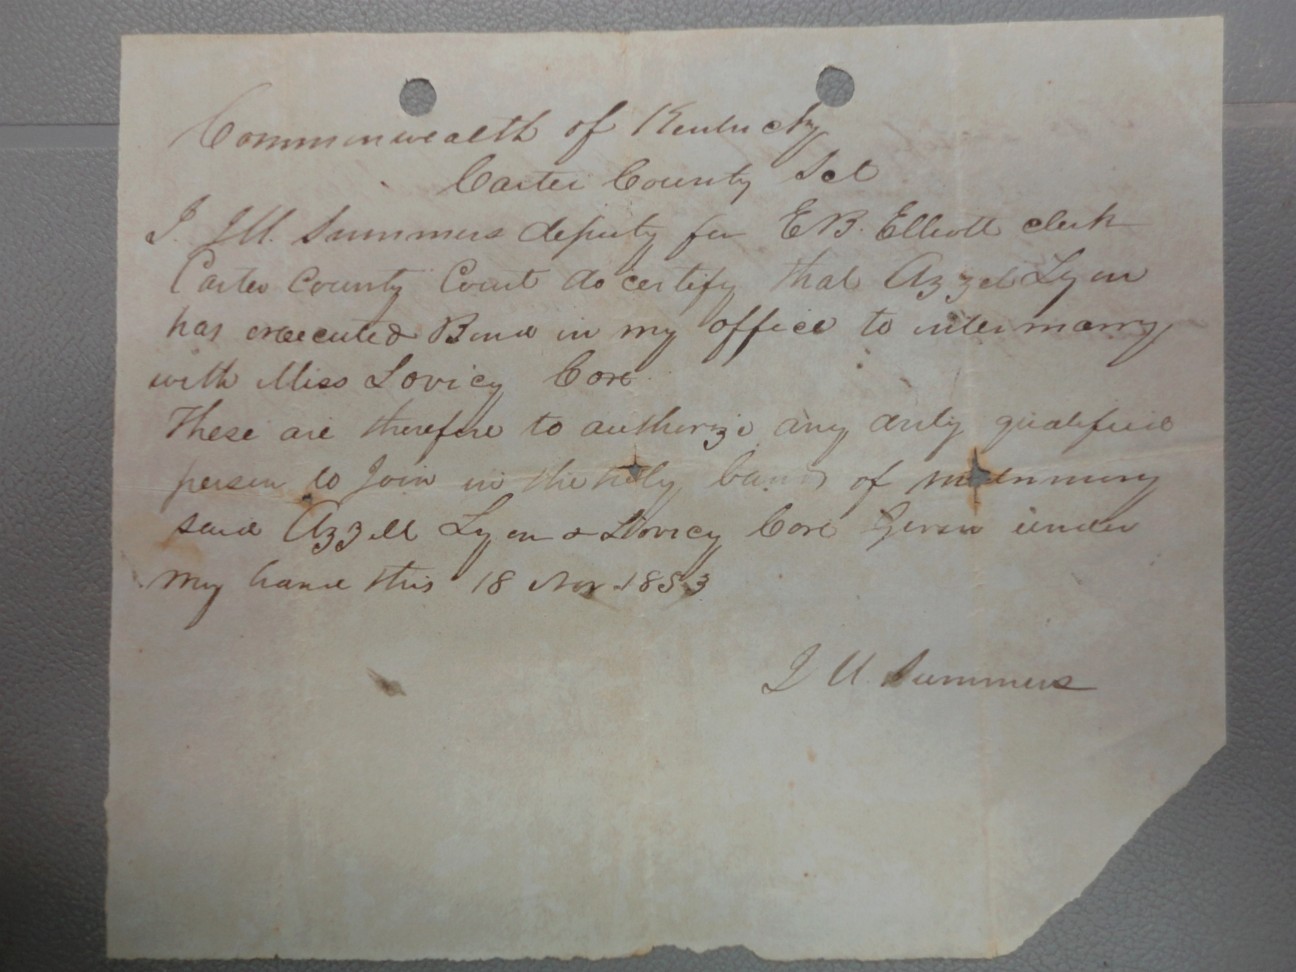 Commonwealth of Kentucky
Carter County Sct
I. J.U. Summers deputy for E.B. Elliott clerk
Carter County Court do certify that Azzel Lyon
has executed Bond in my office to intermarry
with Miss Lovicy Cox
These are therefore to authorize any duly qualified
person to Join in the holy of
said Azzell Lyon & Lovicy Cox Given under
my hand this 18 Nov 1853
J U. Summers